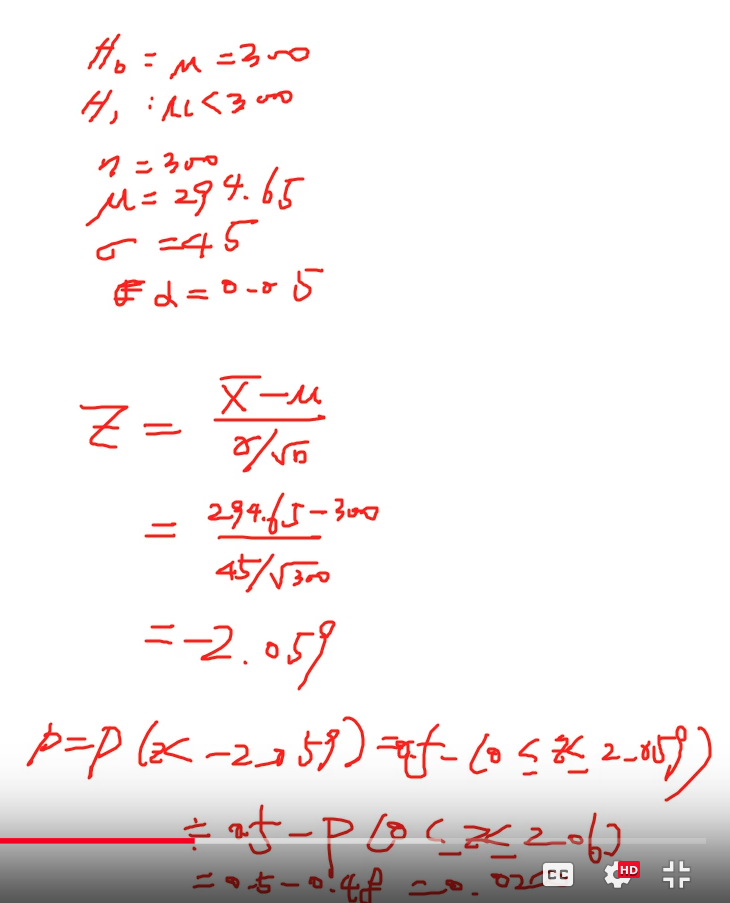 H₀ : μ = 300
H₁ : μ < 300
n = 300
μ = 294.65
σ = 45
α = 0.05
Z = (X̄ - μ) / (σ/√n)
= (294.65 - 300) / (45/√300)
= -2.059
p = P(z < -2.059) = 0.5 - (0 ≤ z ≤ 2.059)
≑ 0.5 - P(0 ≤ z ≤ 2.06)
= 0.5 - 0.48 = 0.02
CC HD